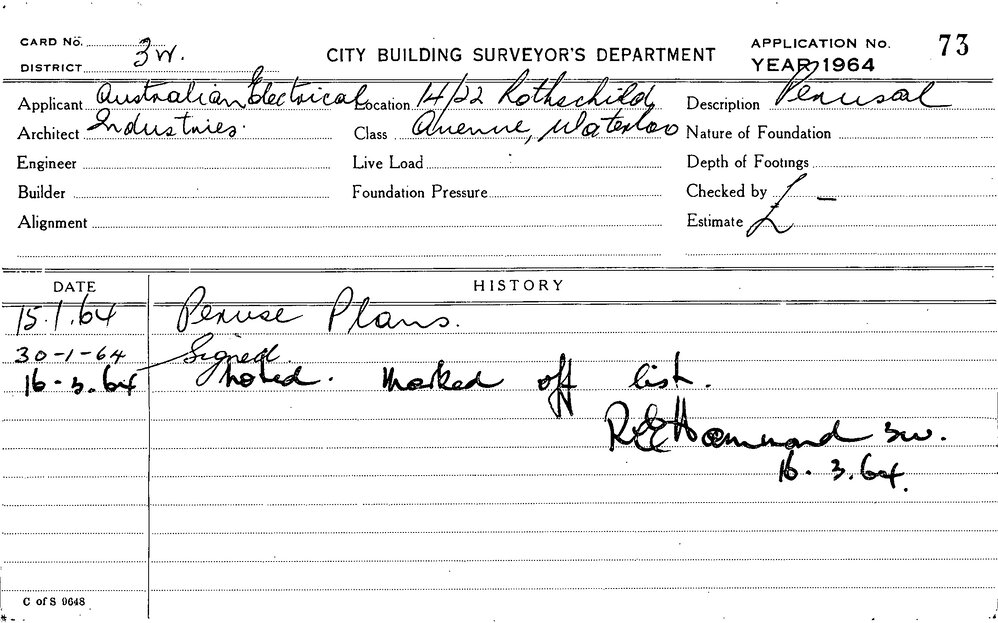 CARD No. CITY BUILDING SURVEYOR'S DEPARTMENT APPLICATION No. 73
DISTRICT 3W. YEAR 1964
Applicant Australian Electrical Location 14/22 Rothschild Description Perusal
Architect Industries. Class Avenue, Waterloo Nature of Foundation
Engineer Live Load Depth of Footings
Builder Foundation Pressure Checked by
Alignment Estimate £ -
DATE HISTORY
15.1.64 Peruse Plans.
30-1-64 Signed.
16-3.64 Noted. Marked off list.
R E Hammond 3W.
16.3.64.
C of S 9648